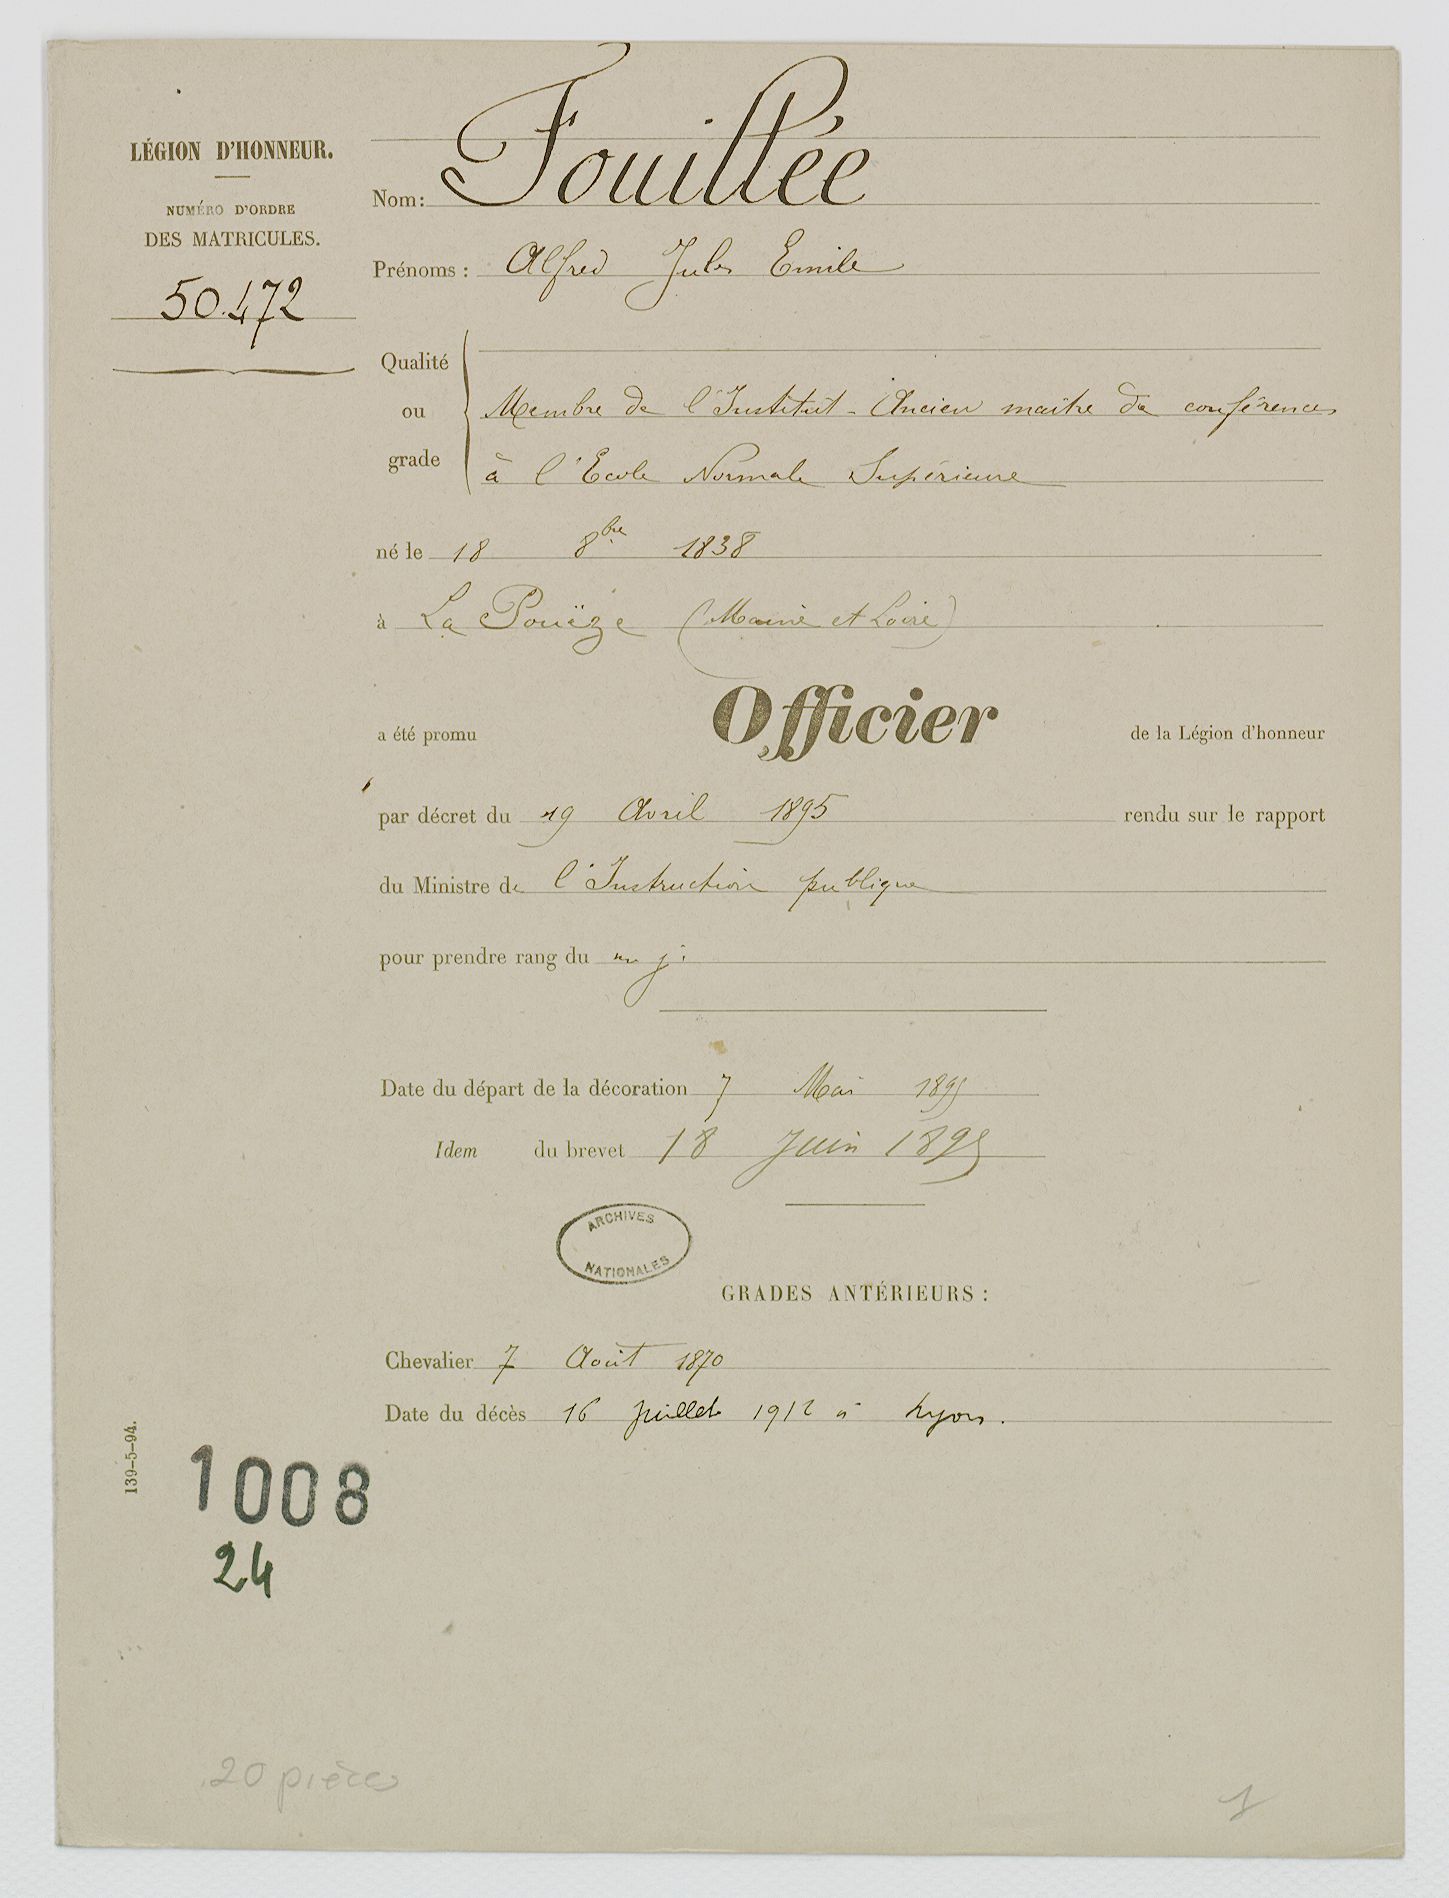 LÉGION D'HONNEUR.
NUMÉRO D'ORDRE
DES MATRICULES.
50.472
Nom: Fouillée
Prénoms : Alfred Jules Emile
Qualité
ou
grade
Membre de l'Institut - Ancien maître de conférences
à l'Ecole Normale Supérieure
né le 18 8bre 1838
à La Pouëze (Maine et Loire)
a été promu Officier de la Légion d'honneur
par décret du 19 Avril 1895 rendu sur le rapport
du Ministre de l'Instruction publique
pour prendre rang du
Date du départ de la décoration 7 Mai 1895
Idem du brevet 18 Juin 1895
ARCHIVES
NATIONALES
GRADES ANTÉRIEURS :
Chevalier 7 Août 1870
Date du décès 16 juillet 1912 à Lyon.
139-5-94.
1008
24
20 pièces
1